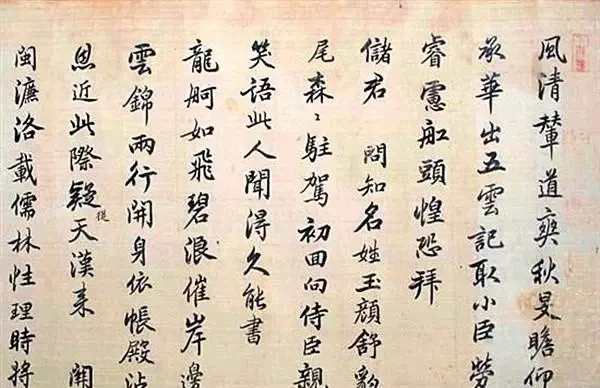 風清輦道爽秋旻瞻仰
承華出五雲記取小臣勞
睿慮舡頭惶恐拜
儲君 問知名姓玉顏舒豹
尾森〻駐駕初回向侍臣親
笑語此人聞得久能書
龍舸如飛碧浪催岸邊
雲錦兩行開身依帳殿沾
恩近此際疑從天漢來 開
閩濂洛載儒林性理時將